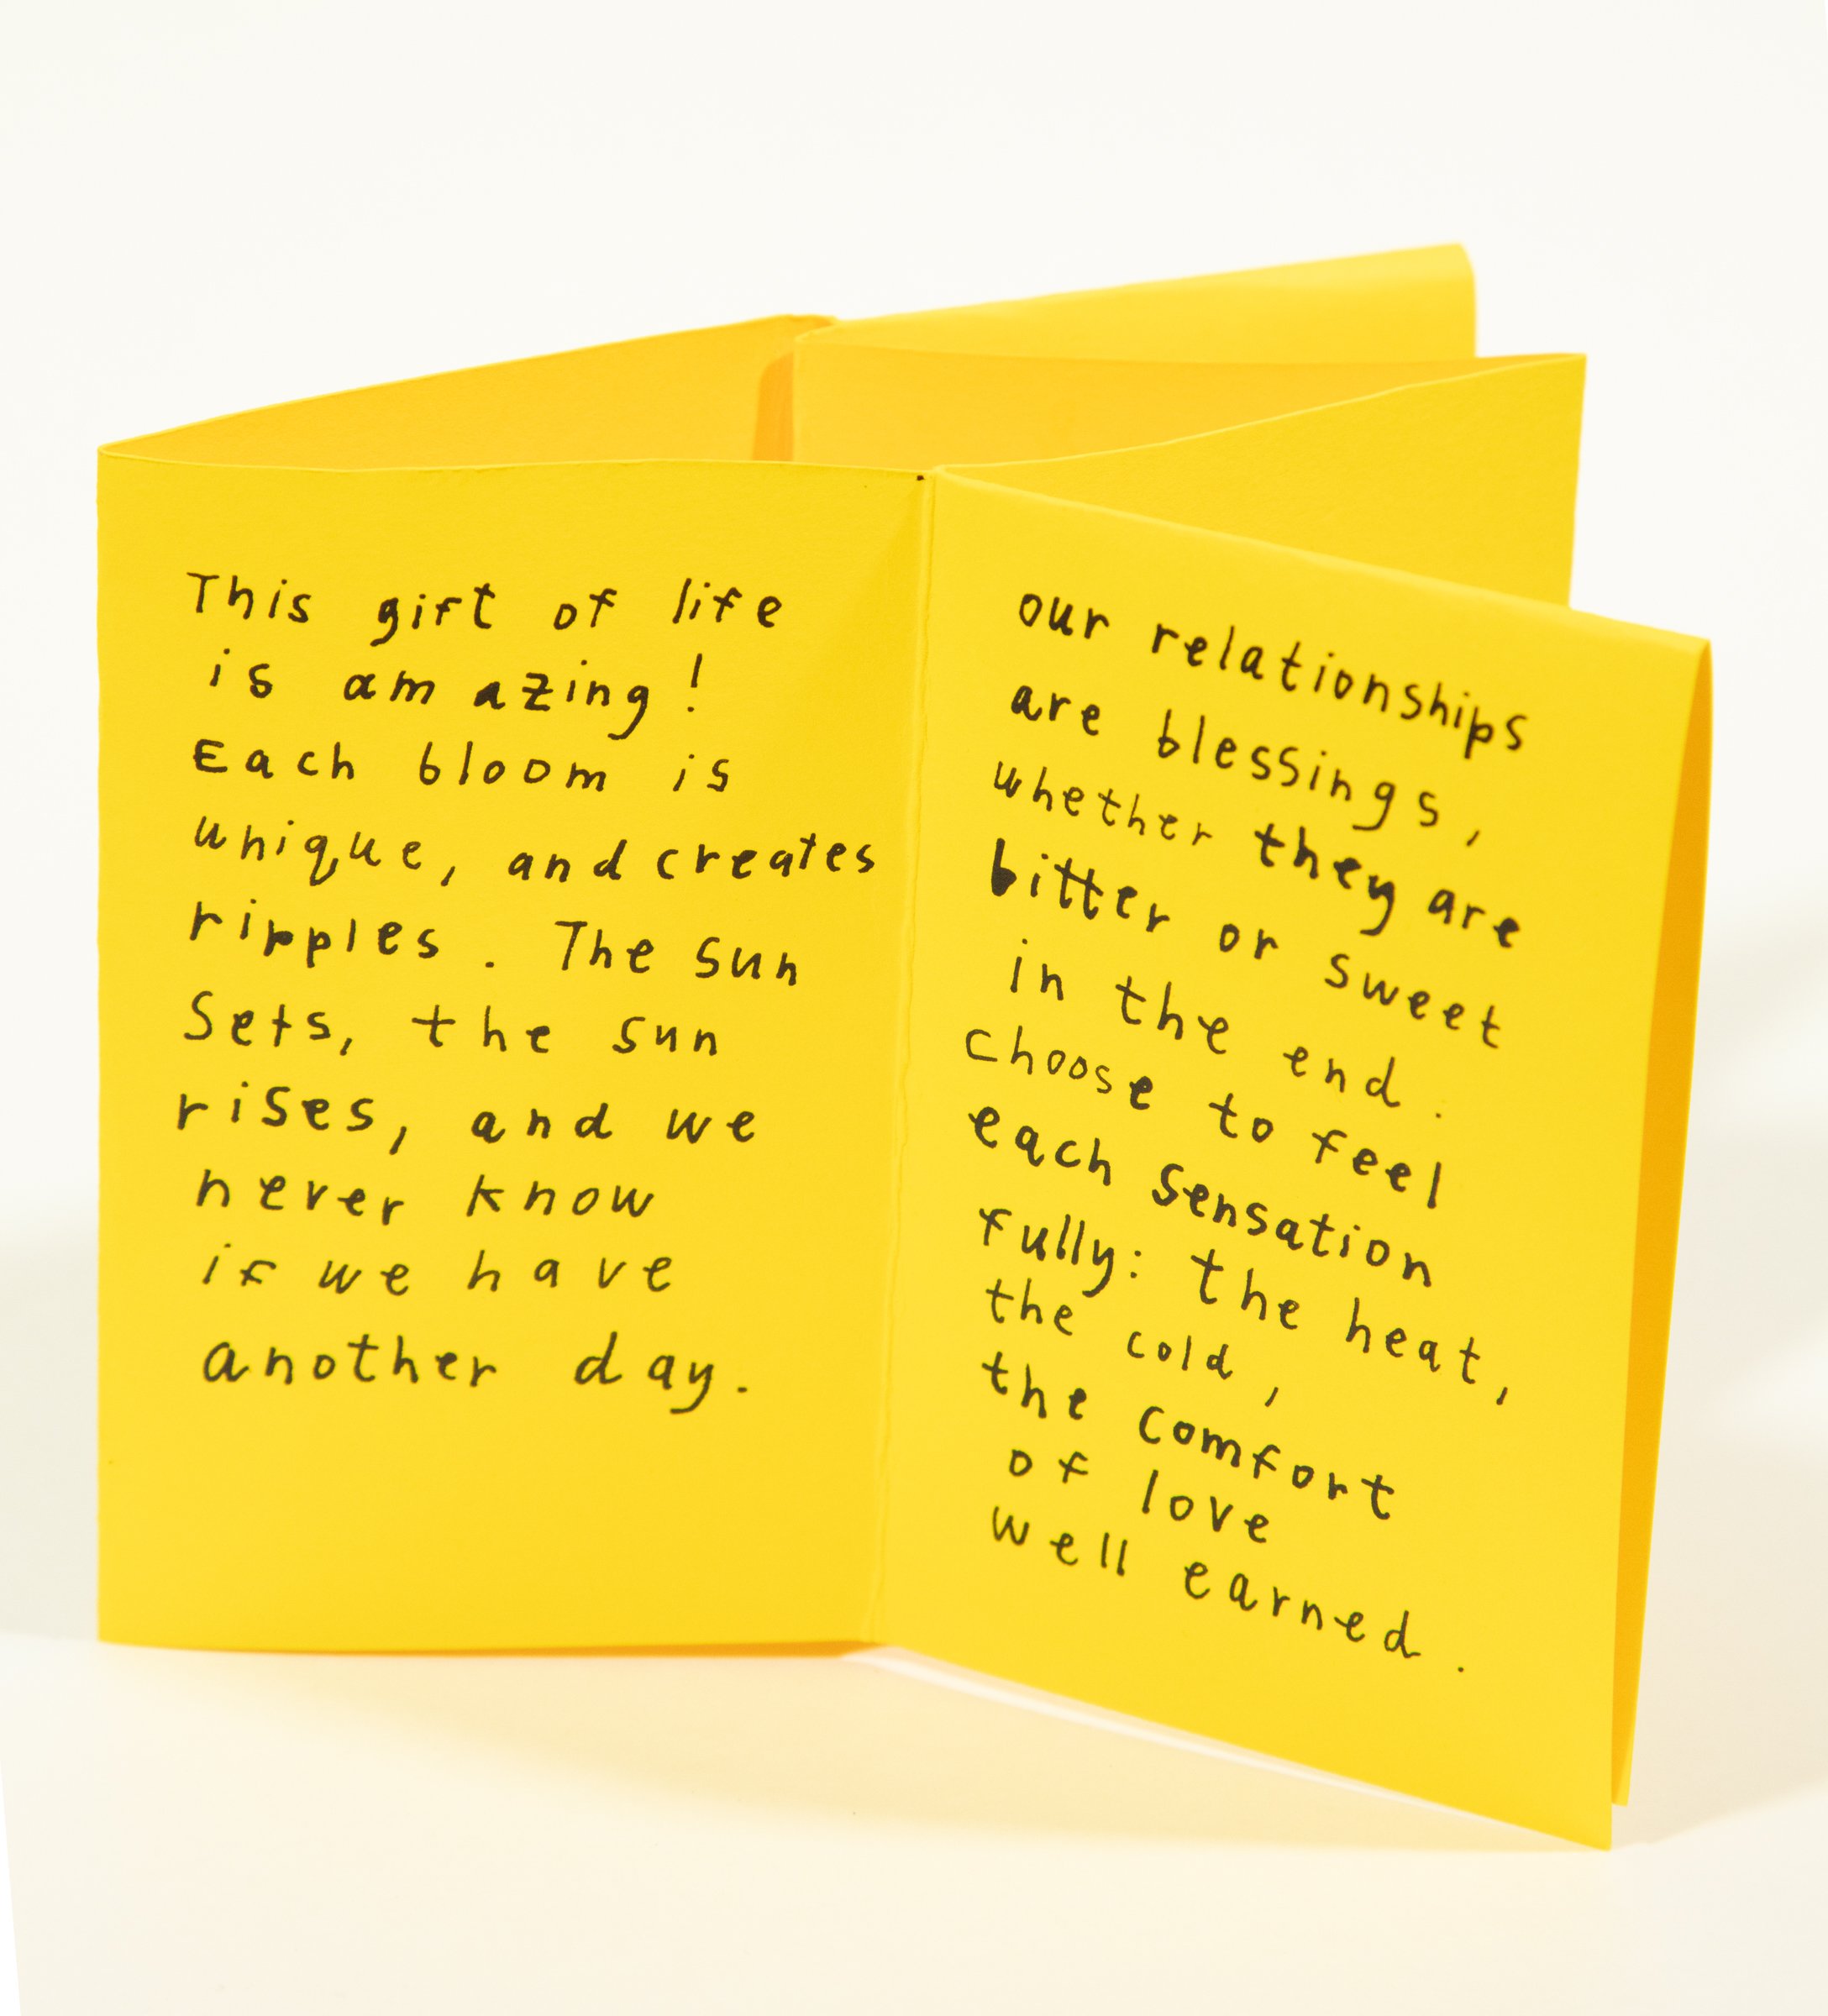 This gift of life
is amazing!
Each bloom is
unique, and creates
ripples. The sun
Sets, the sun
rises, and we
never know
if we have
another day.
our relationships
are blessings,
whether they are
bitter or sweet
in the end.
choose to feel
each sensation
fully: the heat,
the cold,
the comfort
of love
well earned.